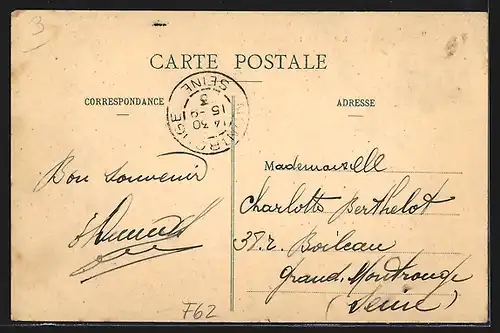 3
CARTE POSTALE
CORRESPONDANCE
ADRESSE
SEINE
14 30
15
3
Bon souvenir
Mademoiselle
Charlotte Berthelot
37 r. Boileau
Grand. Montrouge
(Seine)
F62